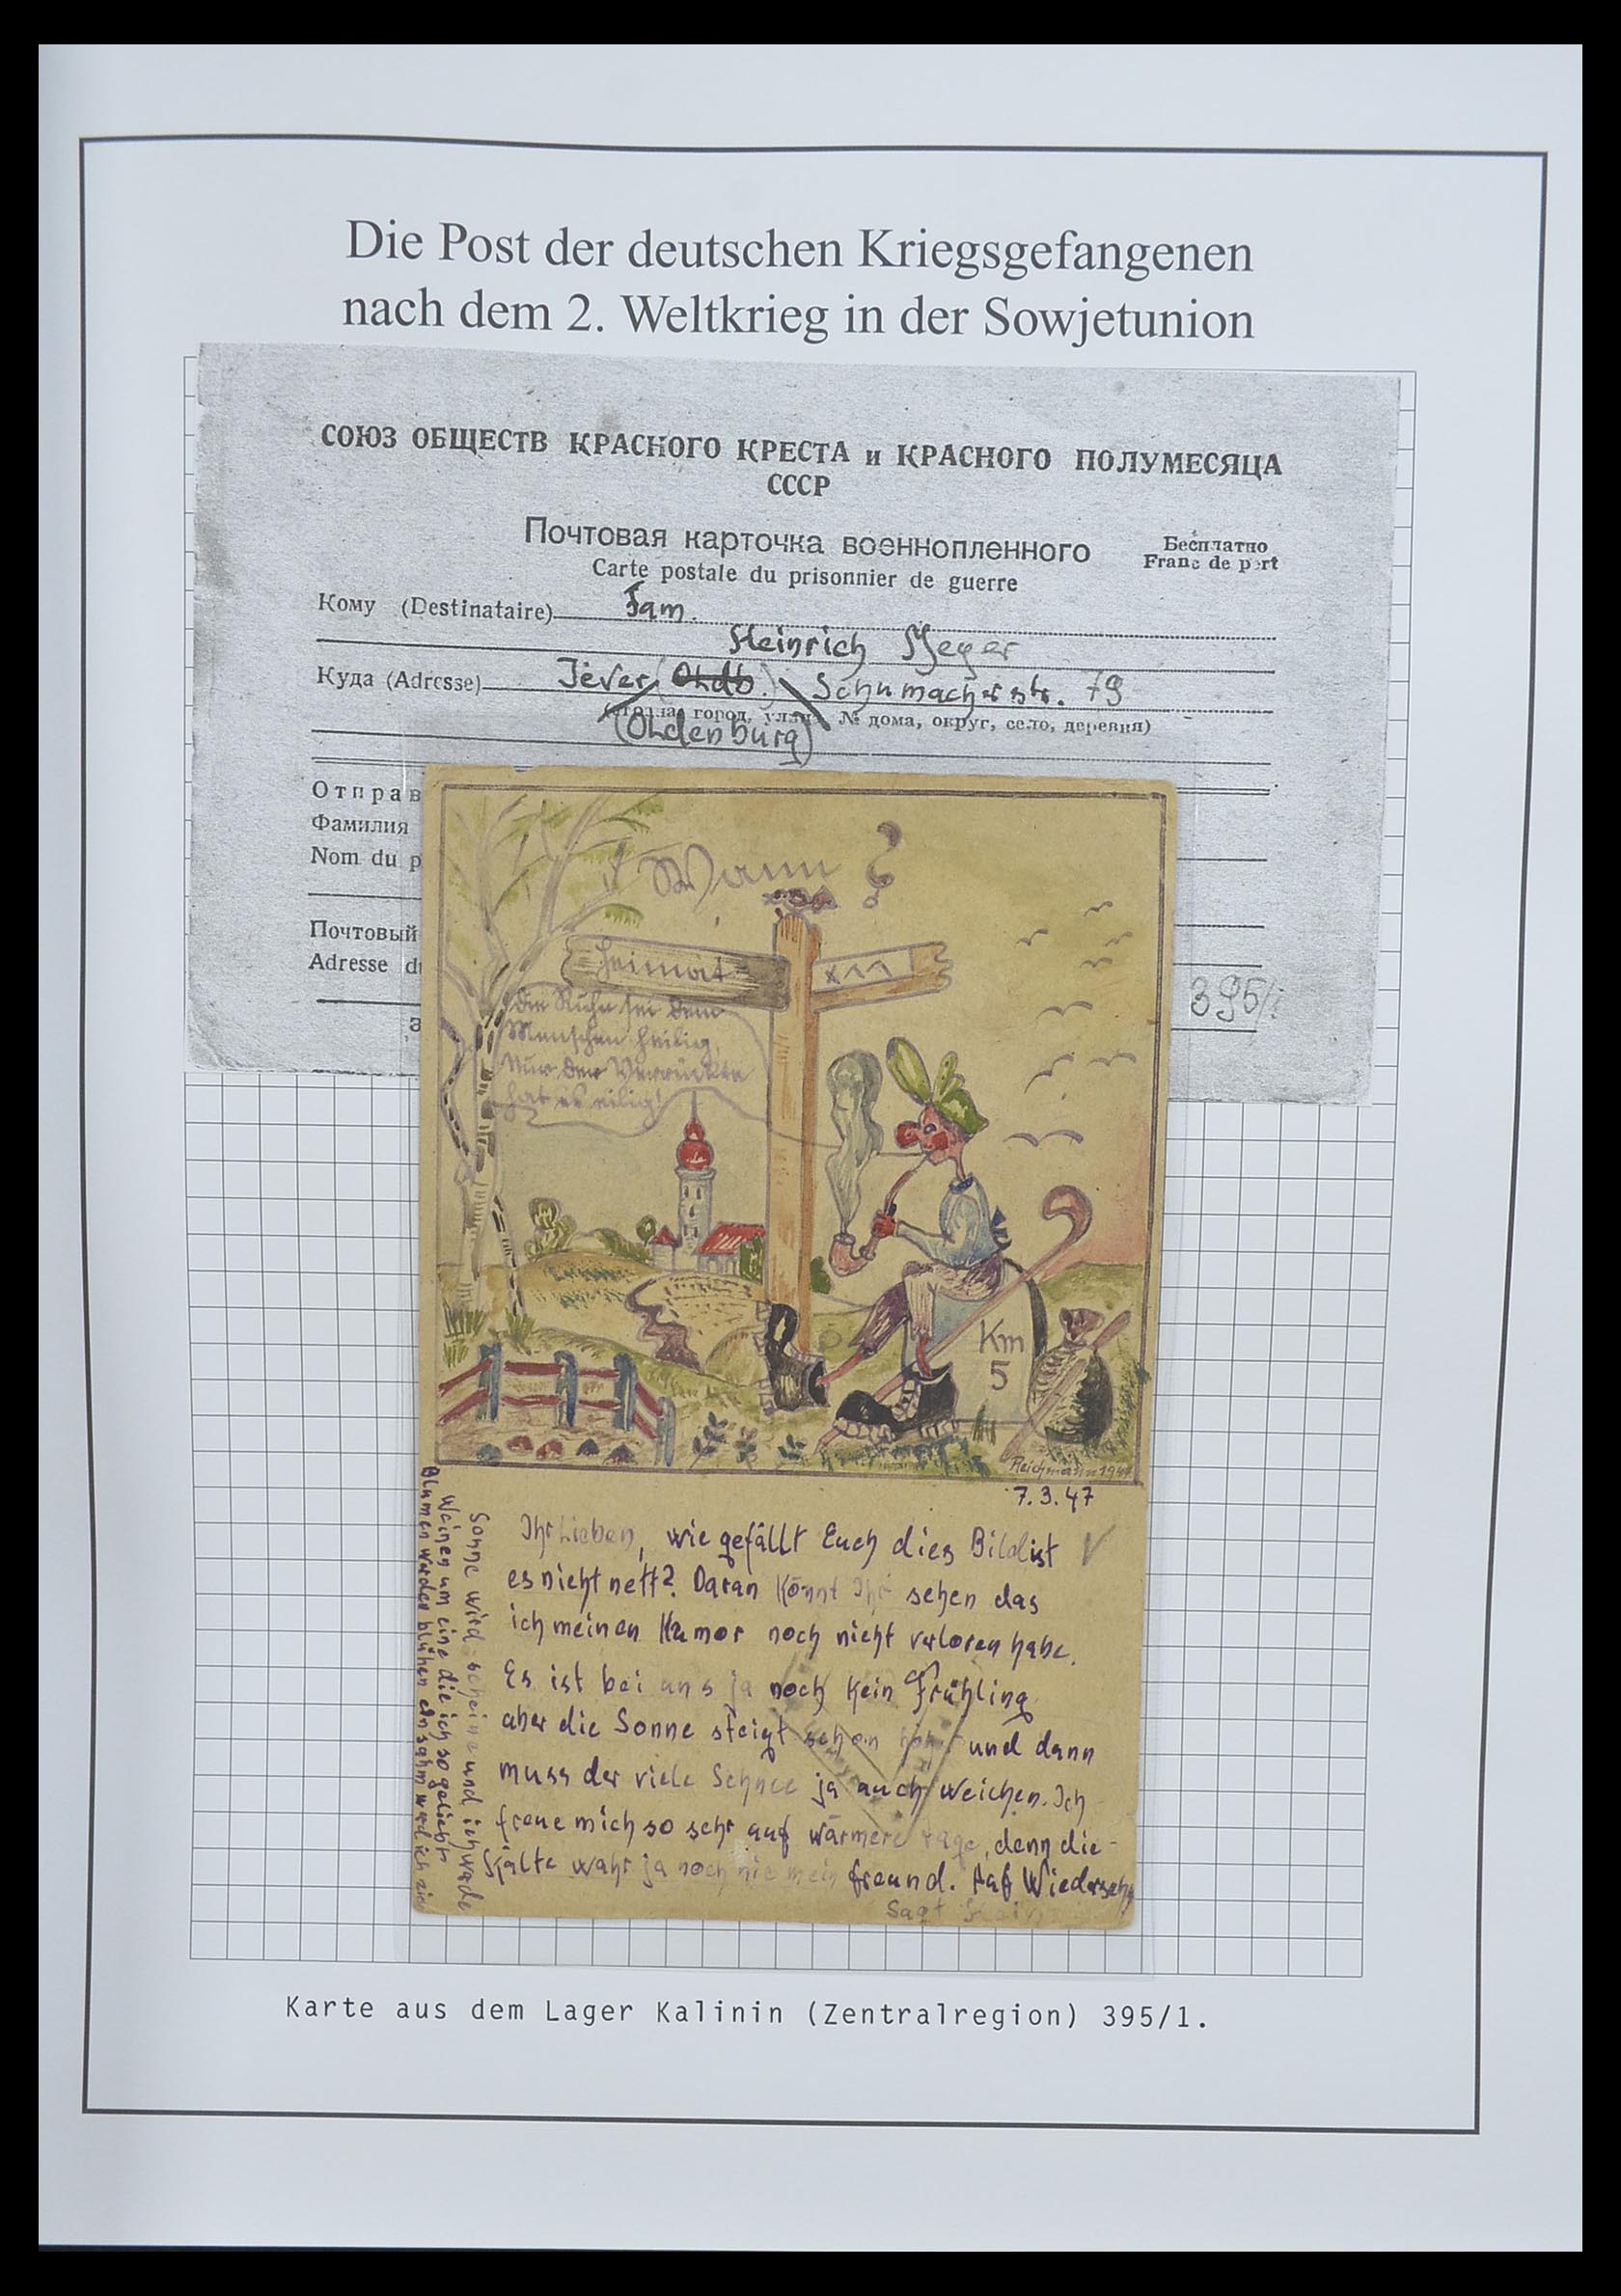 Die Post der deutschen Kriegsgefangenen
nach dem 2. Weltkrieg in der Sowjetunion
СОЮЗ ОБЩЕСТВ КРАСНОГО КРЕСТА и КРАСНОГО ПОЛУМЕСЯЦА
СССР
Почтовая карточка военнопленного
Бесплатно
Carte postale du prisonnier de guerre
Franc de port
Кому (Destinataire) Fam.
Heinrich Meyer
Куда (Adresse) Jever (Oldb.) Schumacherstr. 79
город, улица № дома, округ, село, деревня)
(Oldenburg)
Отправ
Фамилия
Nom du p
Почтовый
Adresse d
395/1
Wann ?
Heimat
XII
Die Ruhe sei dem
Menschen heilig,
Nur der Verrückte
hat es eilig!
Km
5
Reichmann 194
7.3.47
Ihr Lieben, wie gefällt Euch dies Bild ist
es nicht nett? Daran könnt Ihr sehen das
ich meinen Humor noch nicht verloren habe.
Es ist bei uns ja noch kein Frühling
aber die Sonne steigt schon und dann
muss der viele Schnee ja auch weichen. Ich
freue mich so sehr auf wärmere tage, denn die
Kälte wahr ja noch nie mein freund. Auf Wiedersehn
Sagt
Sonne wird scheine und ich werde
Weinen um eine die ich so geliebt
Blumen werden blühen einsahm werd ich
Karte aus dem Lager Kalinin (Zentralregion) 395/1.